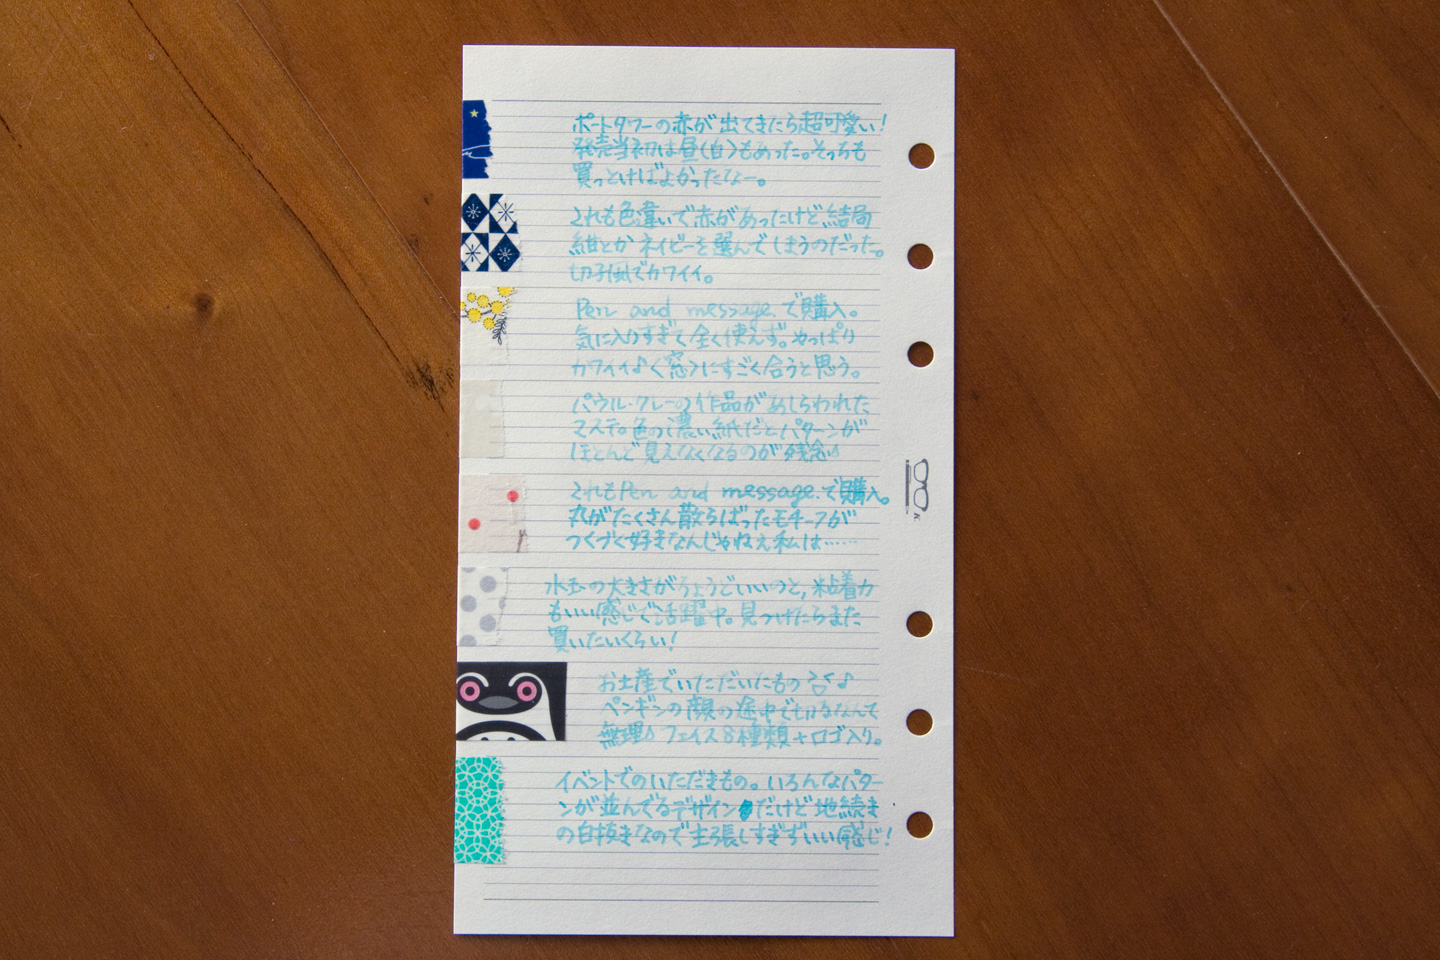 ポートタワーの赤が出てきたら超可愛い!
発売当初は昼(白)もあった。そっちも
買っとけばよかったなー。
これも色違いで赤があったけど、結局
紺とかネイビーを選んでしまうのだった。
切子風でカワイイ。
Pen and message.で購入。
気に入りすぎて全く使えず。やっぱり
カワイイ♪〈窓〉にすごく合うと思う。
パウル・クレーの作品があしらわれた
マステ。色の濃い紙だとパターンが
ほとんど見えなくなるのが残念
これもPen and message.で購入。
丸がたくさん散らばったモチーフが
つくづく好きなんじゃねぇ私は……
水玉の大きさがちょうどいいのと、粘着力
もいい感じで活躍中。見つけたらまた
買いたいくらい!
お土産でいただいたもの
ペンギンの顔の途中で切るなんて
無理 フェイス8種類+ロゴ入り。
イベントでのいただきもの。いろんなパター
ンが並んでるデザインだけど地続き
の白抜きなので主張しすぎずいい感じ!